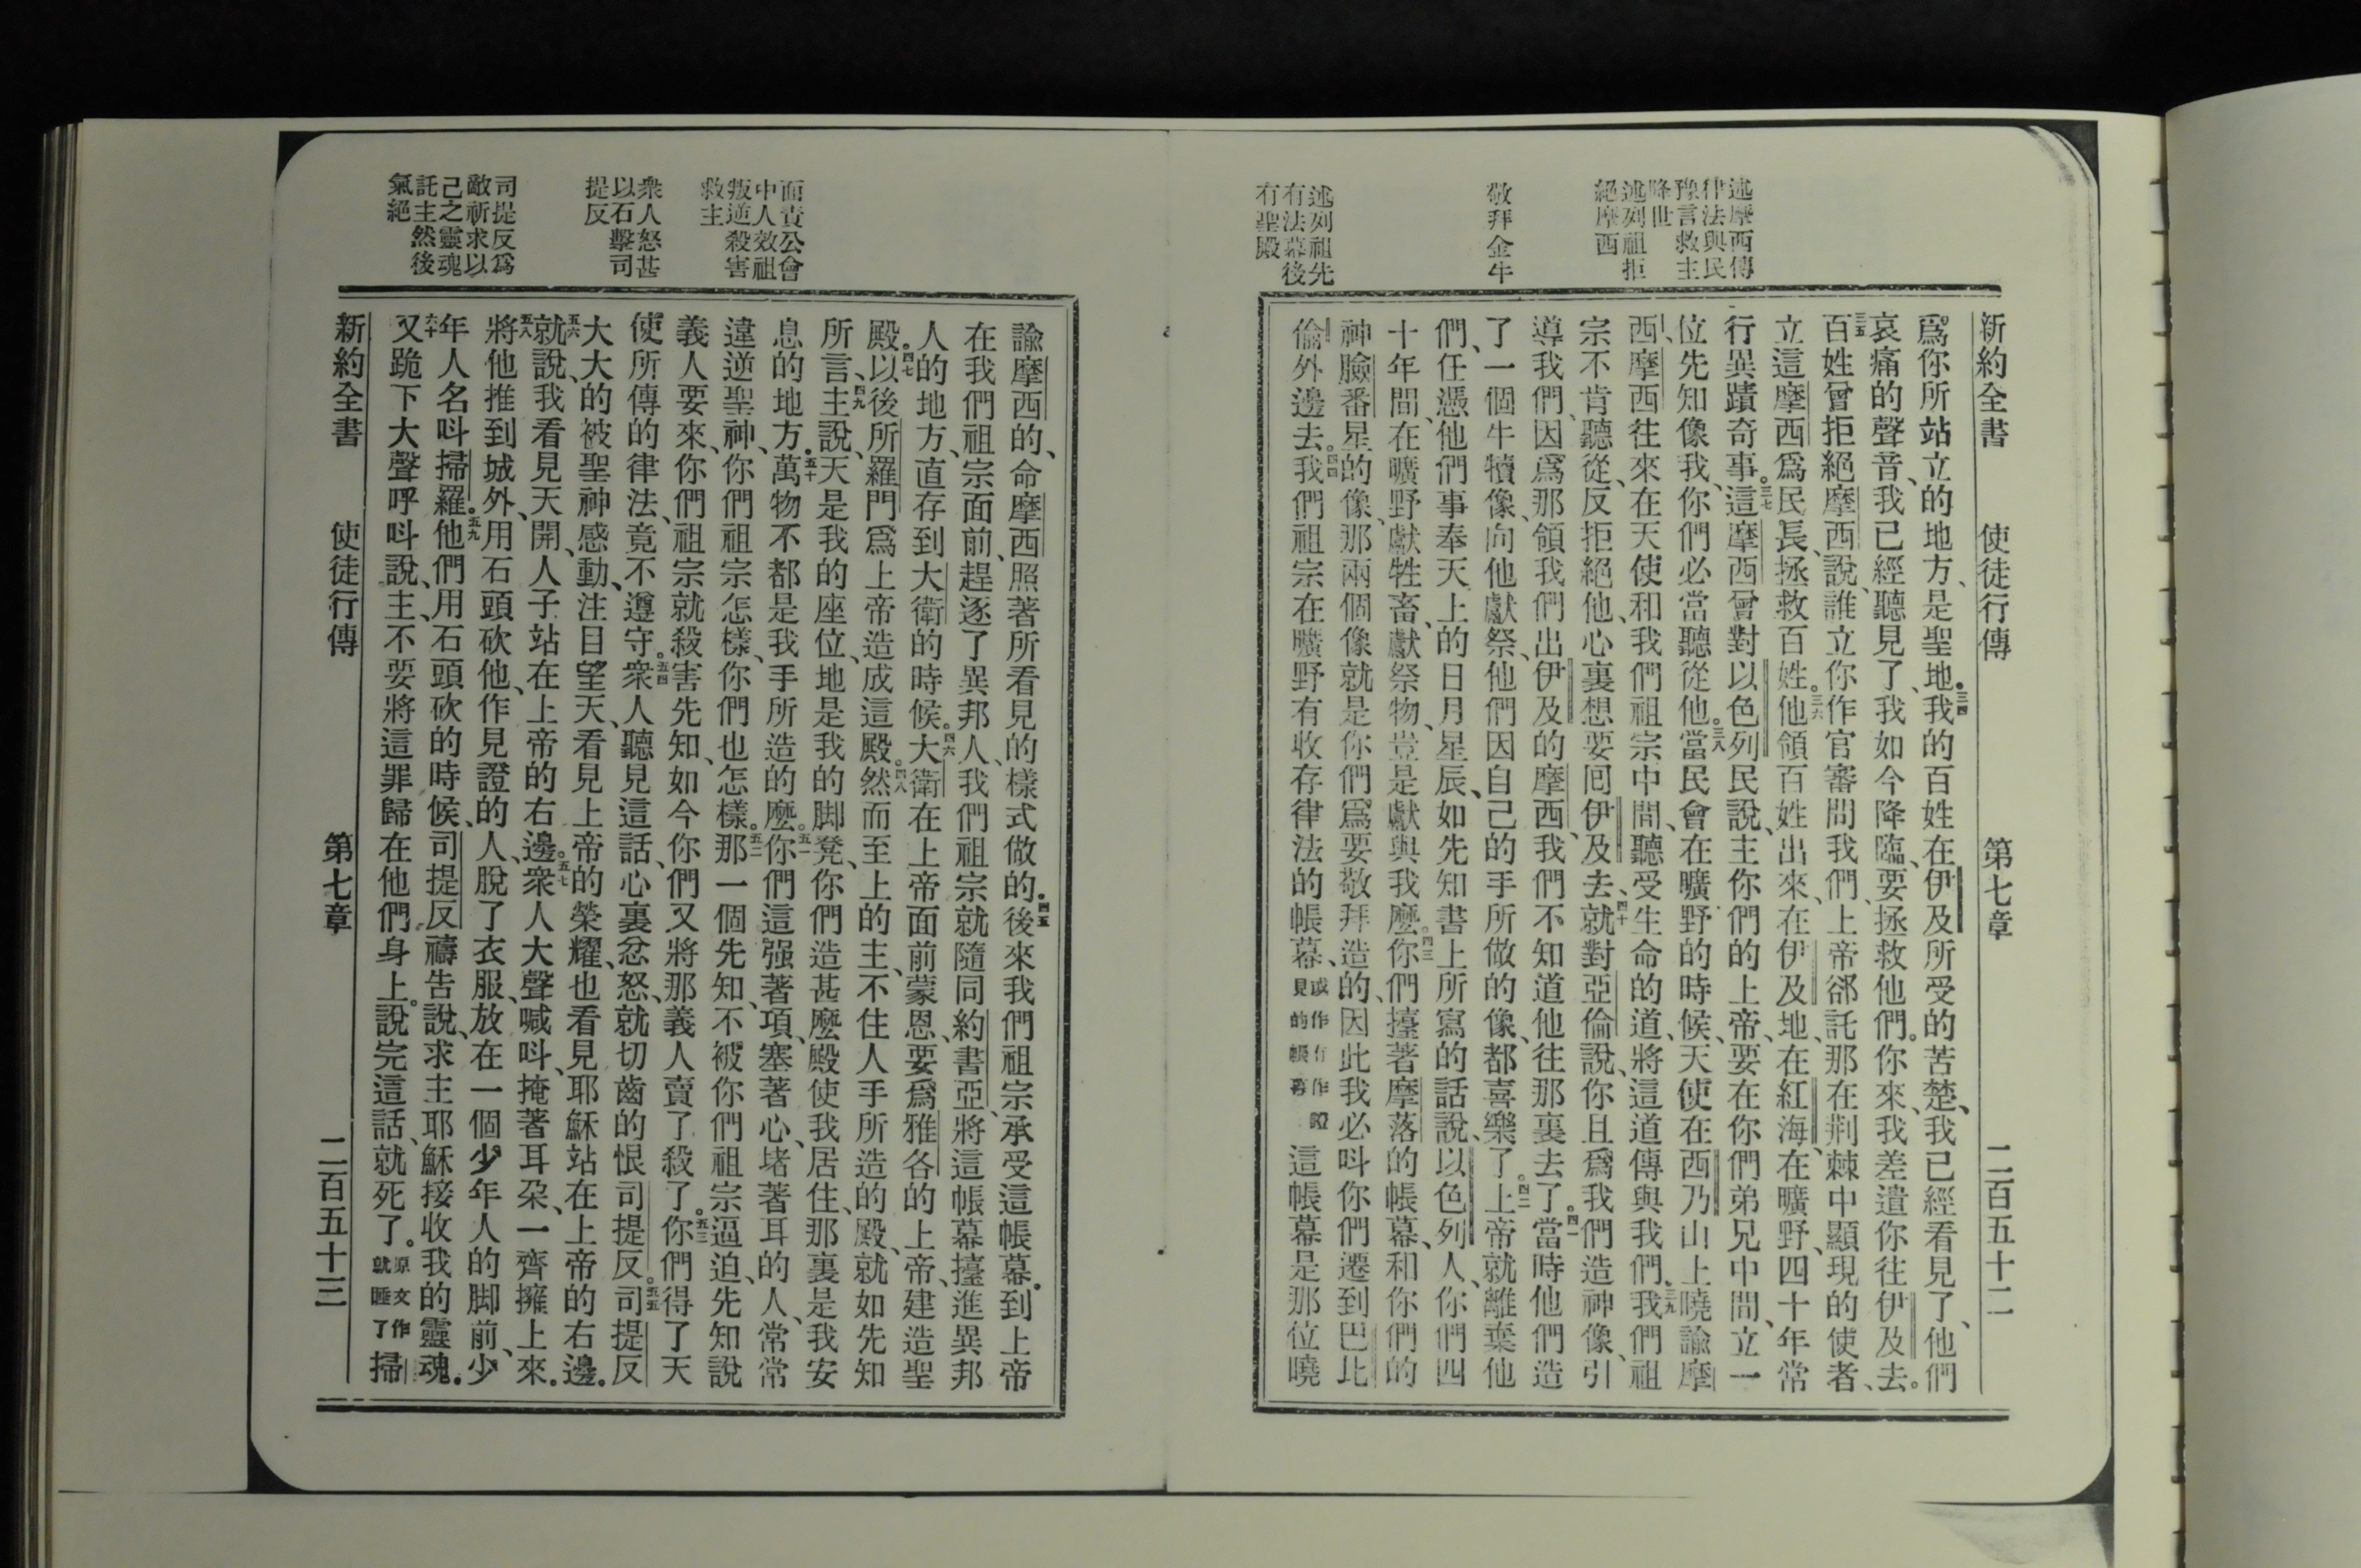 新約全書 使徒行傳 第七章 二百五十二
述摩西傳
律法與民
豫言救主
降世
述列祖拒
絕摩西
敬拜金牛
述列祖先
有法幕後
有聖殿
爲你所站立的地方、是聖地。三四我的百姓在伊及所受的苦楚、我已經看見了、他們
哀痛的聲音、我已經聽見了、我如今降臨、要拯救他們。你來、我差遣你往伊及去。
三五百姓曾拒絕摩西說、誰立你作官審問我們、上帝郤託那在荆棘中顯現的使者、
立這摩西爲民長、拯救百姓。三六他領百姓出來、在伊及地、在紅海、在曠野、四十年常
行異蹟奇事。三七這摩西曾對以色列民說、主你們的上帝、要在你們弟兄中間、立一
位先知像我、你們必當聽從他。三八當民會在曠野的時候、天使在西乃山上曉諭摩
西、摩西往來在天使和我們祖宗中間、聽受生命的道、將這道傳與我們。三九我們祖
宗不肯聽從、反拒絕他、心裏想要囘伊及去、四十就對亞倫說、你且爲我們造神像、引
導我們、因爲那領我們出伊及的摩西、我們不知道他往那裏去了。四一當時他們造
了一個牛犢像、向他獻祭、他們因自己的手所做的像、都喜樂了。四二上帝就離棄他
們、任憑他們事奉天上的日月星辰、如先知書上所寫的話說、以色列人、你們四
十年間、在曠野獻牲畜、獻祭物、豈是獻與我麼。四三你們擡著摩落的帳幕、和你們的
神臉番星的像、那兩個像就是你們爲要敬拜造的、因此我必呌你們遷到巴比
倫外邊去。四四我們祖宗在曠野有收存律法的帳幕、或作有作證見的帳幕這帳幕是那位曉
面責公會
中人效祖
叛逆殺害
救主
衆人怒甚
以石擊司
提反
司提反爲
敵祈求以
己之靈魂
託主然後
氣絕
諭摩西的、命摩西照著所看見的樣式做的。四五後來我們祖宗承受這帳幕。到上帝
在我們祖宗面前、趕逐了異邦人、我們祖宗就隨同約書亞、將這帳幕擡進異邦
人的地方、直存到大衛的時候。四六大衛在上帝面前蒙恩、要爲雅各的上帝、建造聖
殿。四七以後所羅門爲上帝造成這殿。四八然而至上的主、不住人手所造的殿、就如先知
所言、四九主說、天是我的座位、地是我的脚凳、你們造甚麼殿使我居住、那裏是我安
息的地方。五十萬物不都是我手所造的麼。五一你們這强著項、塞著心、堵著耳的人、常常
違逆聖神、你們祖宗怎樣、你們也怎樣。五二那一個先知、不被你們祖宗逼迫、先知說
義人要來、你們祖宗就殺害先知、如今你們又將那義人賣了殺了。五三你們得了天
使所傳的律法、竟不遵守。五四衆人聽見這話、心裏忿怒、就切齒的恨司提反。五五司提反
大大的被聖神感動、注目望天、看見上帝的榮耀、也看見耶穌站在上帝的右邊。
五六就說、我看見天開、人子站在上帝的右邊。五七衆人大聲喊呌、掩著耳朶、一齊擁上來。
五八將他推到城外、用石頭砍他、作見證的人、脫了衣服、放在一個少年人的脚前、少
年人名呌掃羅。五九他們用石頭砍的時候、司提反禱告說、求主耶穌接收我的靈魂。
六十又跪下大聲呼呌說、主、不要將這罪歸在他們身上。說完這話、就死了。原文作就睡了掃
新約全書 使徒行傳 第七章 二百五十三